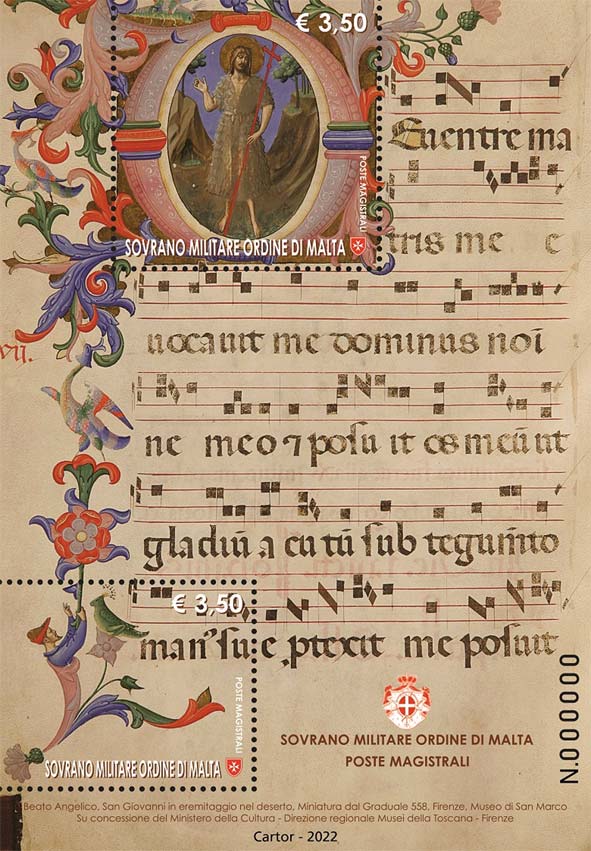 € 3,50
POSTE MAGISTRALI
SOVRANO MILITARE ORDINE DI MALTA
De uentre ma
tris me e
vii.
uocauit me dominus noi
ne meo ⁊ posu it os meū ut
gladiū a cu tū sub tegumīto
man⁹ su e, ptexit me posuit
€ 3,50
POSTE MAGISTRALI
SOVRANO MILITARE ORDINE DI MALTA
SOVRANO MILITARE ORDINE DI MALTA
POSTE MAGISTRALI
N.000000
Beato Angelico, San Giovanni in eremitaggio nel deserto, Miniatura dal Graduale 558, Firenze, Museo di San Marco
Su concessione del Ministero della Cultura - Direzione regionale Musei della Toscana - Firenze
Cartor - 2022